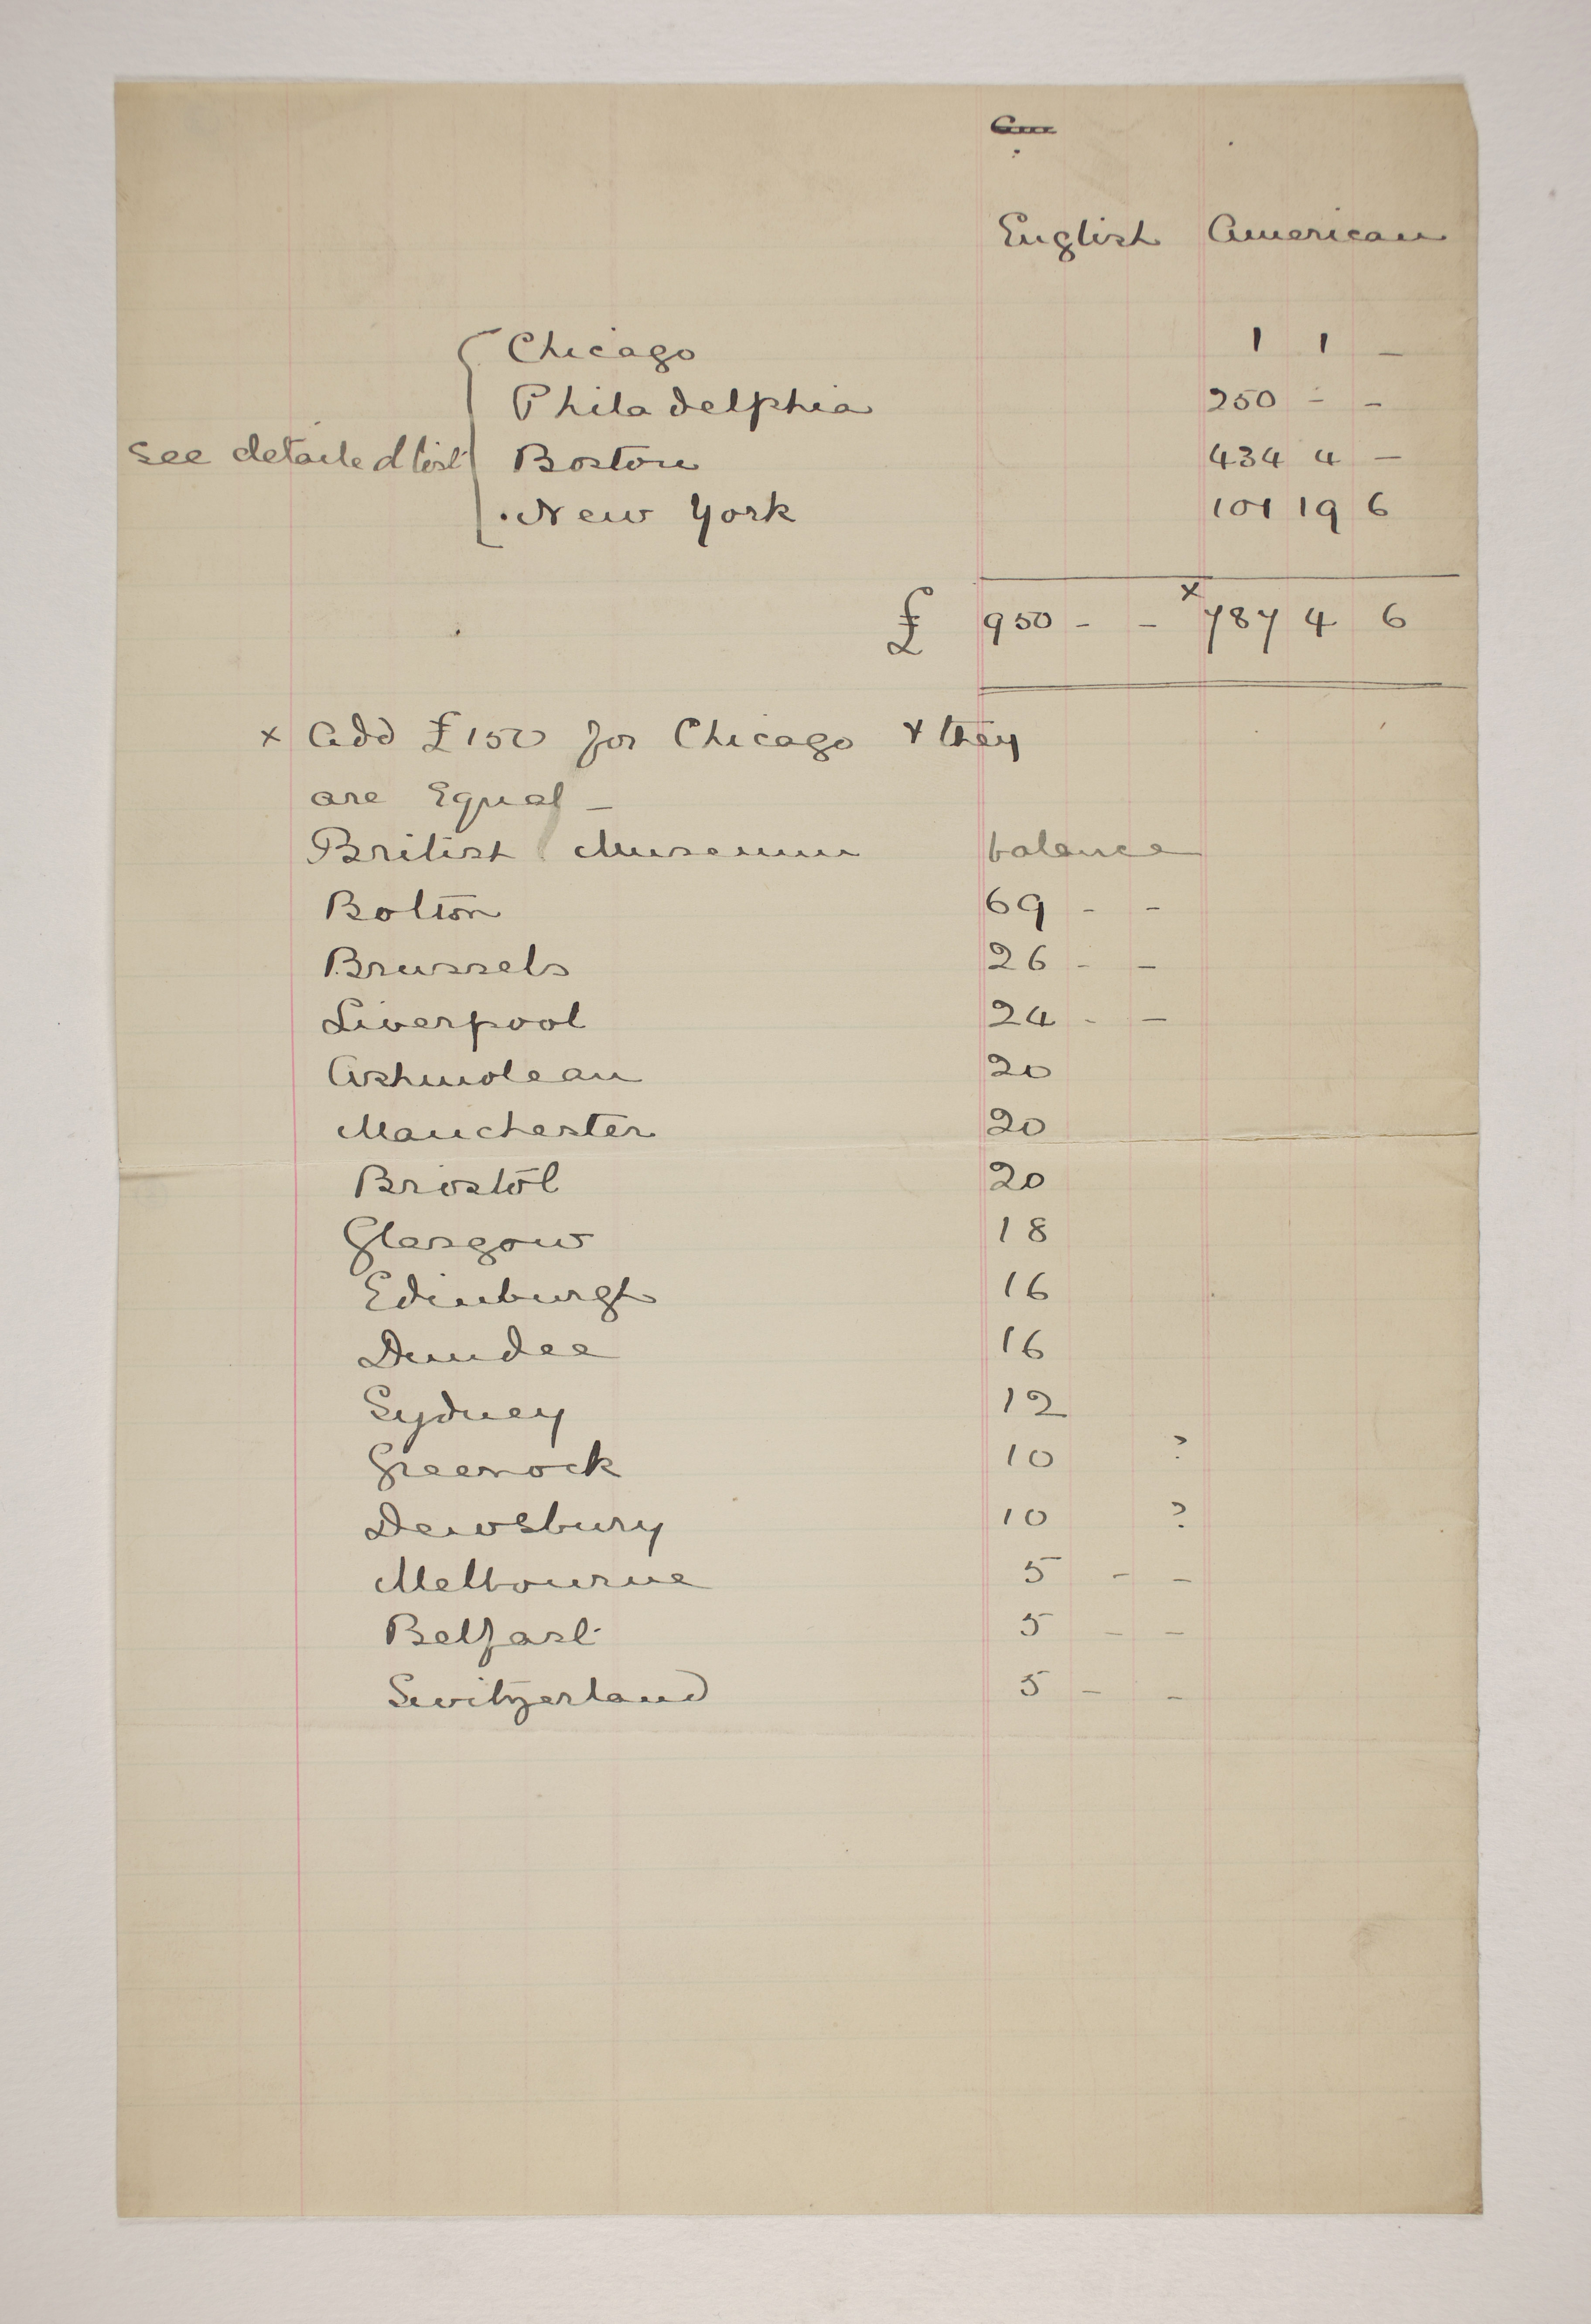 English American
Chicago 1 1 –
Philadelphia 250 – –
see detailed list Boston 434 4 –
New York 101 19 6
£ 950 – – x 787 4 6
x Add £150 for Chicago & they
are Equal –
British Museum balance
Bolton 69 – –
Brussels 26 – –
Liverpool 24 – –
Ashmolean 20
Manchester 20
Bristol 20
Glasgow 18
Edinburgh 16
Dundee 16
Sydney 12
Greenock 10 ?
Dewsbury 10 ?
Melbourne 5 – –
Belfast 5 – –
Switzerland 5 – –